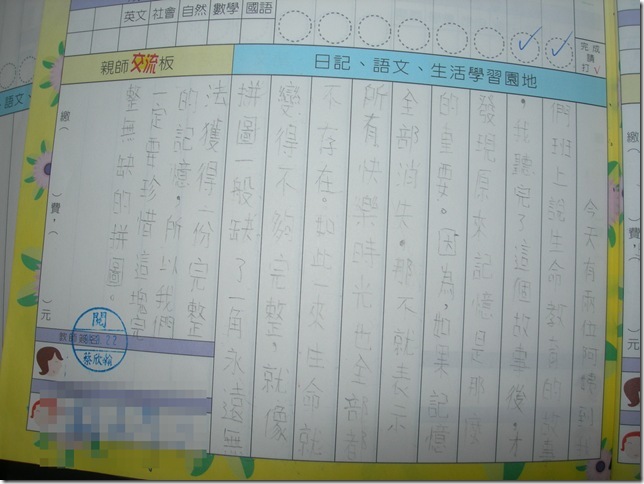 英文 社會 自然 數學 國語
完成請打✓
日記、語文、生活學習園地
親師交流板
今天有兩位阿姨到
們班上說生命教育的故事
。我聽完了這個故事後,才
發現原來記憶是那麼
的重要。因為,如果記憶
全部消失。那不就表示
所有快樂時光也全部都
不存在。如此一來生命就
變得不夠完整。就像
拼圖一般缺了一角永遠無
法獲得一份完整
的記憶。所以我們
一定要珍惜這塊完
整無缺的拼圖。
繳( )費.( )元
閱
繳( 費.( 元
語文、